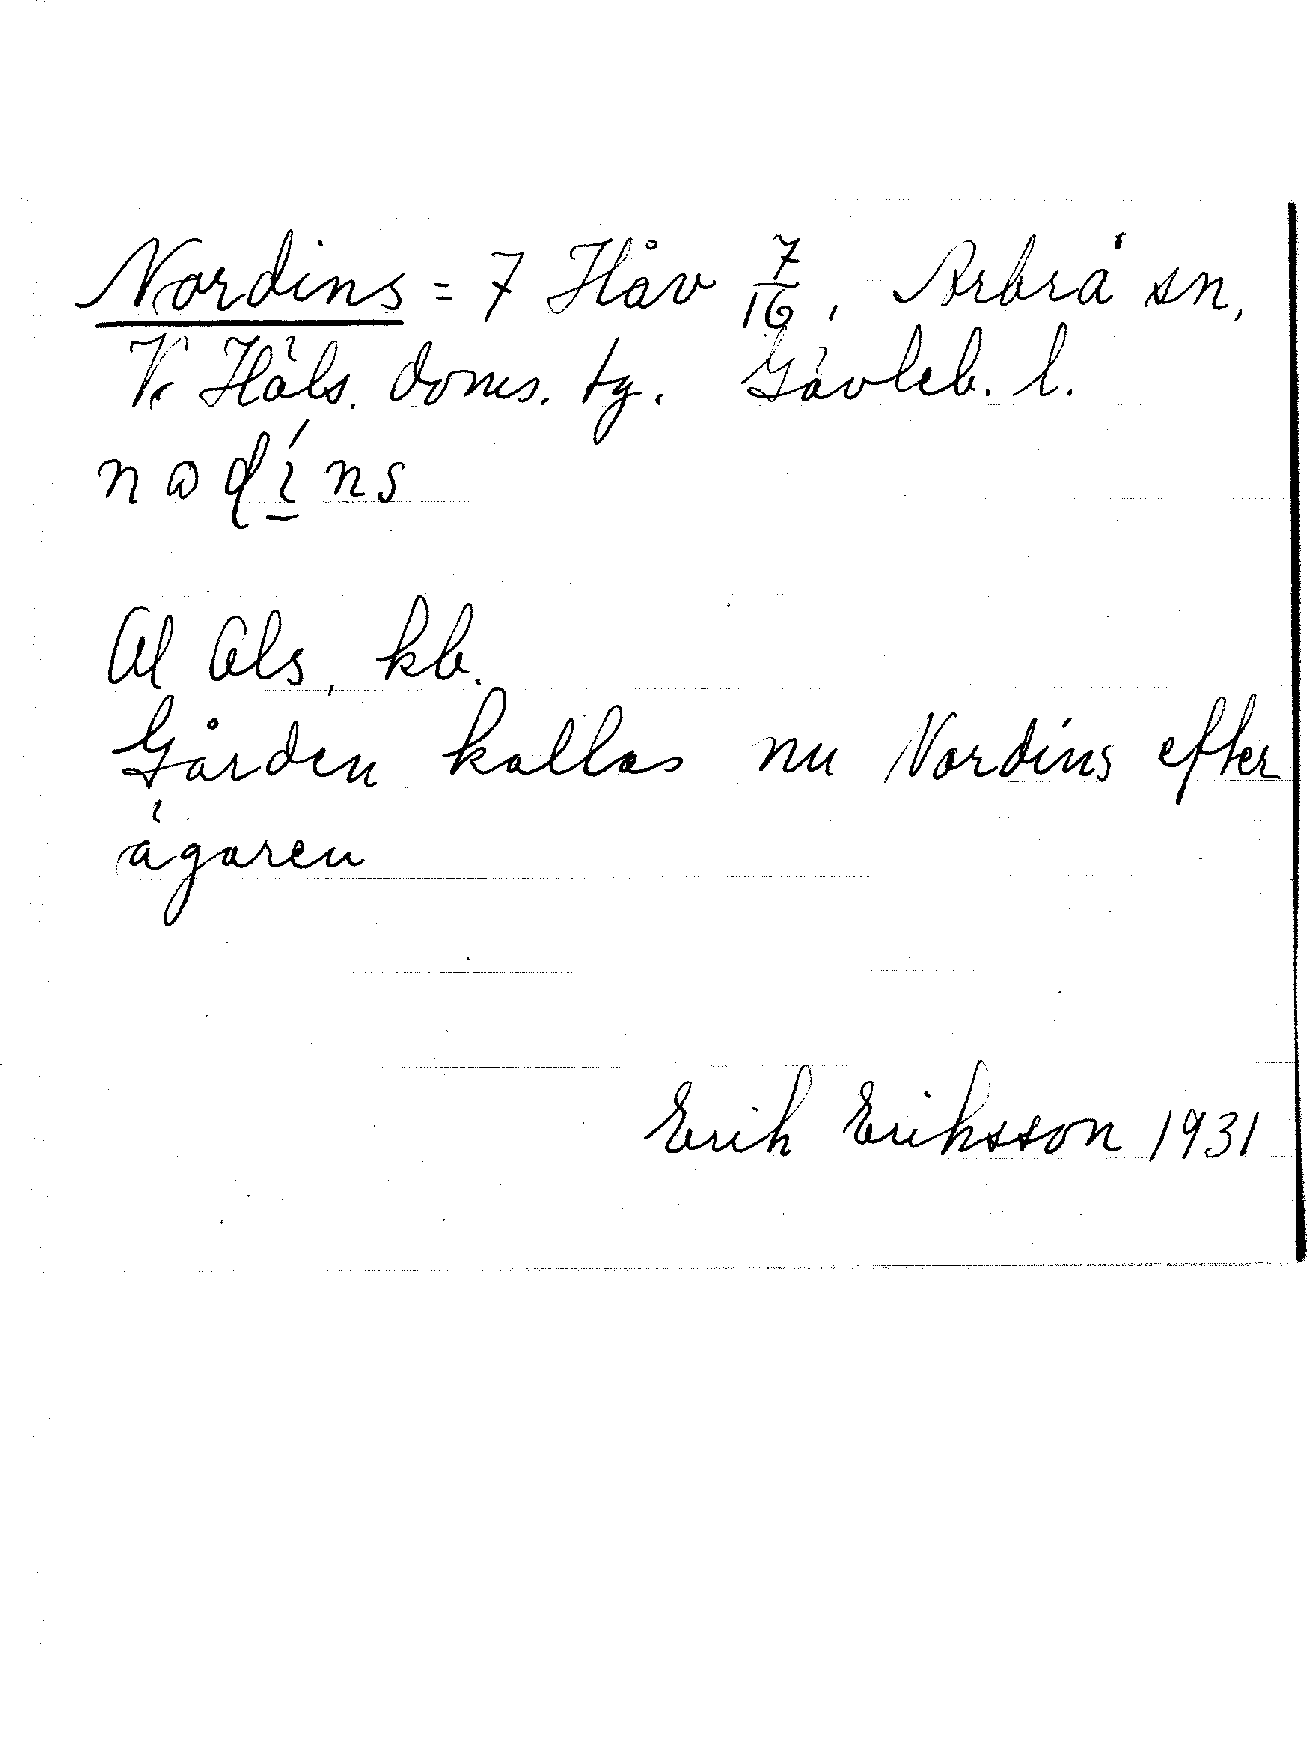 Nordins = 7 Håv 7/16, Arbrå sn,
V. Häls. doms. tg. Gävleb. l.
Al Als, kb.
Gården kallas nu Nordins efter
ägaren
Erik Eriksson 1931